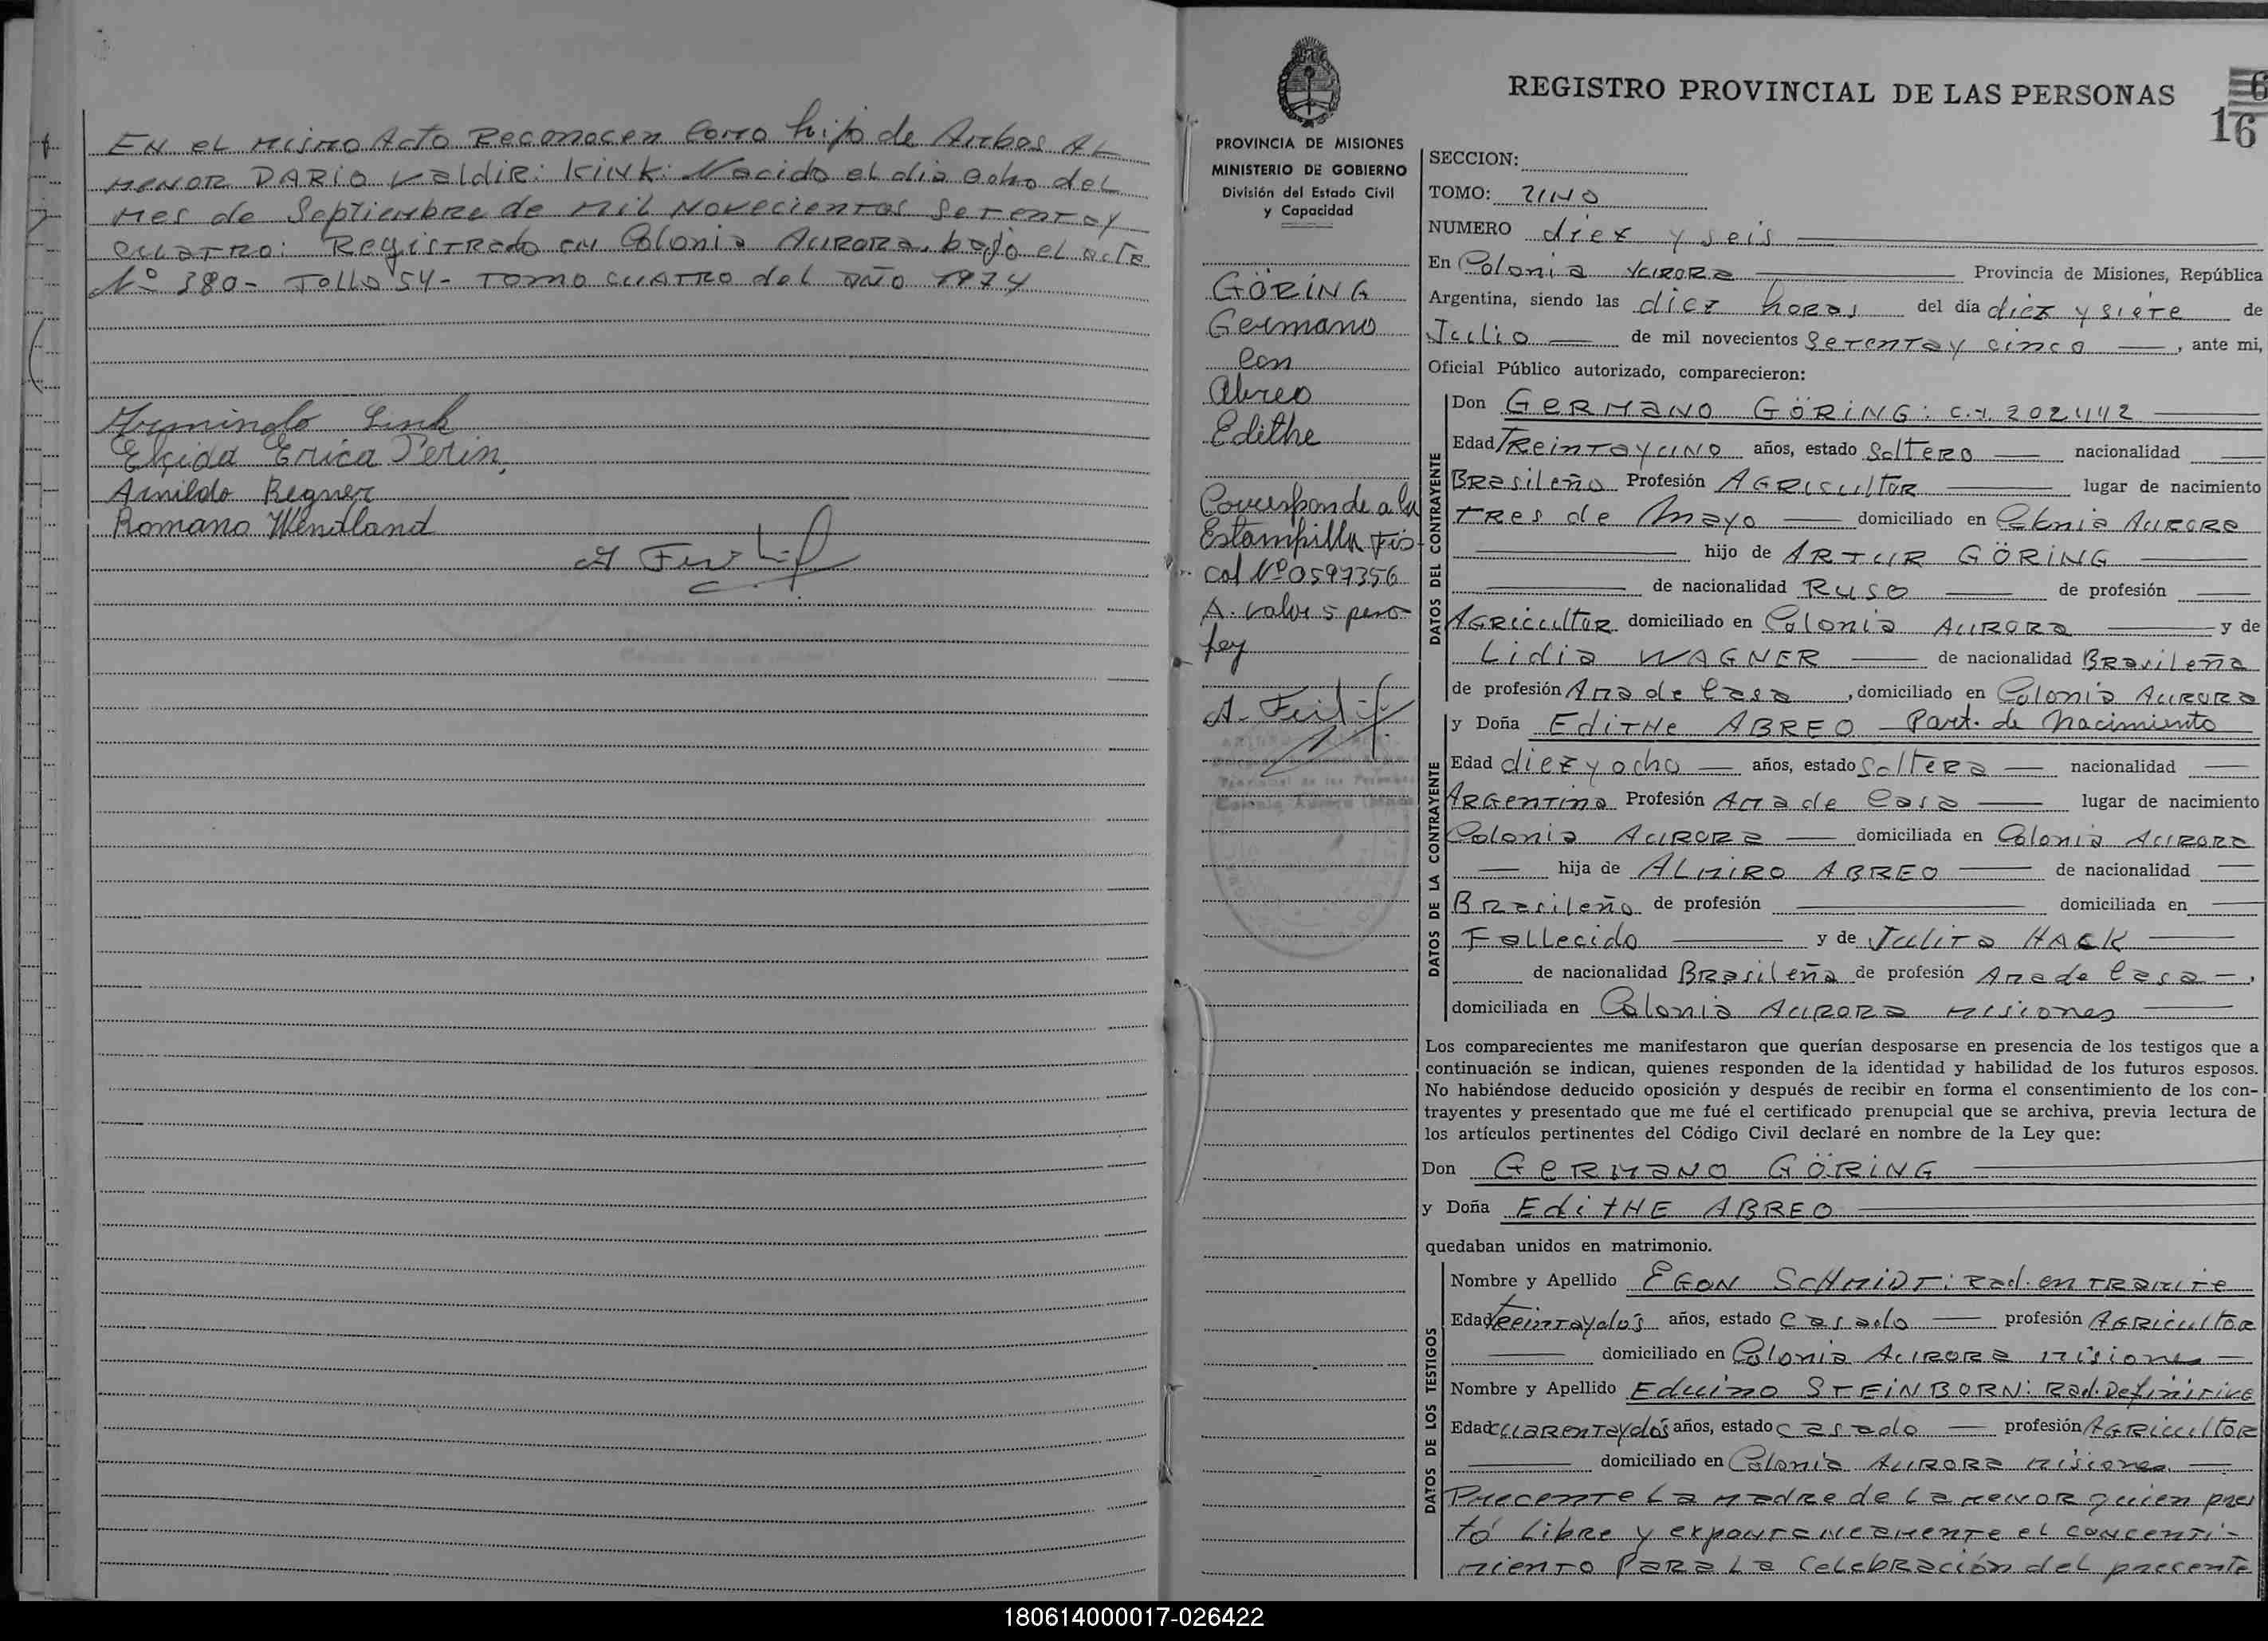 EN el Mismo Acto Reconocen como hijo de Ambos AL
MENOR DARIO Valdir: KINK: Nacido el dia ocho del
Mes de Septiembre de Mil Novecientos Setentay
cuatro: Registrado en Colonia Aurora, bajo el acta
Nº 380- Follo 54- Tomo cuatro del año 1974
Armindo Link
Elcida Erica Perin,
Arnildo Regner
Romano Wendland
PROVINCIA DE MISIONES
MINISTERIO DE GOBIERNO
División del Estado Civil
y Capacidad
GÖRING
Germano
con
Abreo
Edithe
Corresponde a la
Estampilla Fis-
cal Nº 0597356
A. valor 5 peso
Ley
REGISTRO PROVINCIAL DE LAS PERSONAS
6
16
SECCION:
TOMO: UNO
NUMERO diez y seis
En Colonia Aurora Provincia de Misiones, República
Argentina, siendo las diez horas del día diez y siete de
Julio de mil novecientos Setentay cinco, ante mi,
Oficial Público autorizado, comparecieron:
DATOS DEL CONTRAYENTE
Don GERMANO GÖRING: C.I. 202442
Edad Treintayuno años, estado Soltero nacionalidad
Brasileño Profesión AGRICultor lugar de nacimiento
Tres de Mayo domiciliado en Colonia Aurora
hijo de ARTUR GÖRING
de nacionalidad Ruso de profesión
AGRicultor domiciliado en Colonia Aurora y de
Lidia WAGNER de nacionalidad Brasileña
de profesión Ama de Casa, domiciliado en Colonia Aurora
DATOS DE LA CONTRAYENTE
y Doña EdiTHe ABREO Part. de Nacimiento
Edad diez y ocho años, estado Soltera nacionalidad
ARGentina Profesión Ama de Casa lugar de nacimiento
Colonia Aurora domiciliada en Colonia Aurora
hija de ALMIRO ABREO de nacionalidad
Brasileño de profesión domiciliada en
Fallecido y de Julita HACK
de nacionalidad Brasileña de profesión Ama de Casa,
domiciliada en Colonia Aurora Misiones
Los comparecientes me manifestaron que querían desposarse en presencia de los testigos que a
continuación se indican, quienes responden de la identidad y habilidad de los futuros esposos.
No habiéndose deducido oposición y después de recibir en forma el consentimiento de los con-
trayentes y presentado que me fué el certificado prenupcial que se archiva, previa lectura de
los artículos pertinentes del Código Civil declaré en nombre de la Ley que:
Don GERMANO GÖRING
y Doña EdiTHE ABREO
quedaban unidos en matrimonio.
DATOS DE LOS TESTIGOS
Nombre y Apellido EGON SCHMIDT: Rad. en Tramite
Edad Treintaydos años, estado Casado profesión AGRicultor
domiciliado en Colonia Aurora Misiones
Nombre y Apellido Eduino STEINBORN: Rad. Definitiva
Edad cuarentaydos años, estado casado profesión AGRicultor
domiciliado en Colonia Aurora Misiones
Precente La Madre de La Menor quien pres
tó Libre y expontaneamente el concenti-
miento para La Celebración del precente
180614000017-026422